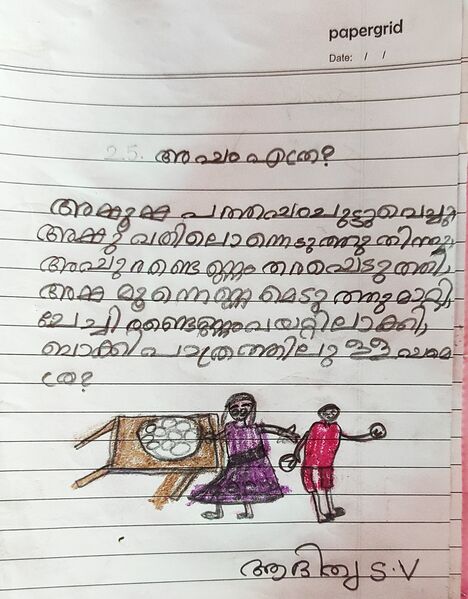 papergrid
Date: / /
25. അപ്പം എത്ര?
അക്കൂക്ക പത്തപ്പം ചുട്ടുവെച്ചു
അക്കു വതിലൊന്നെടുത്തു തിന്നു
അപ്പു രണ്ടെണ്ണം തരപ്പെടുത്തി
അക്ക മൂന്നെണ്ണ മെടുത്തുമാറ്റി
ചേച്ചി രണ്ടെണ്ണം വയറ്റിലാക്കി
ബാക്കി പാത്രത്തിലു ള്ളപ്പമെ
ത്ര?
ആദിത്യ S.V